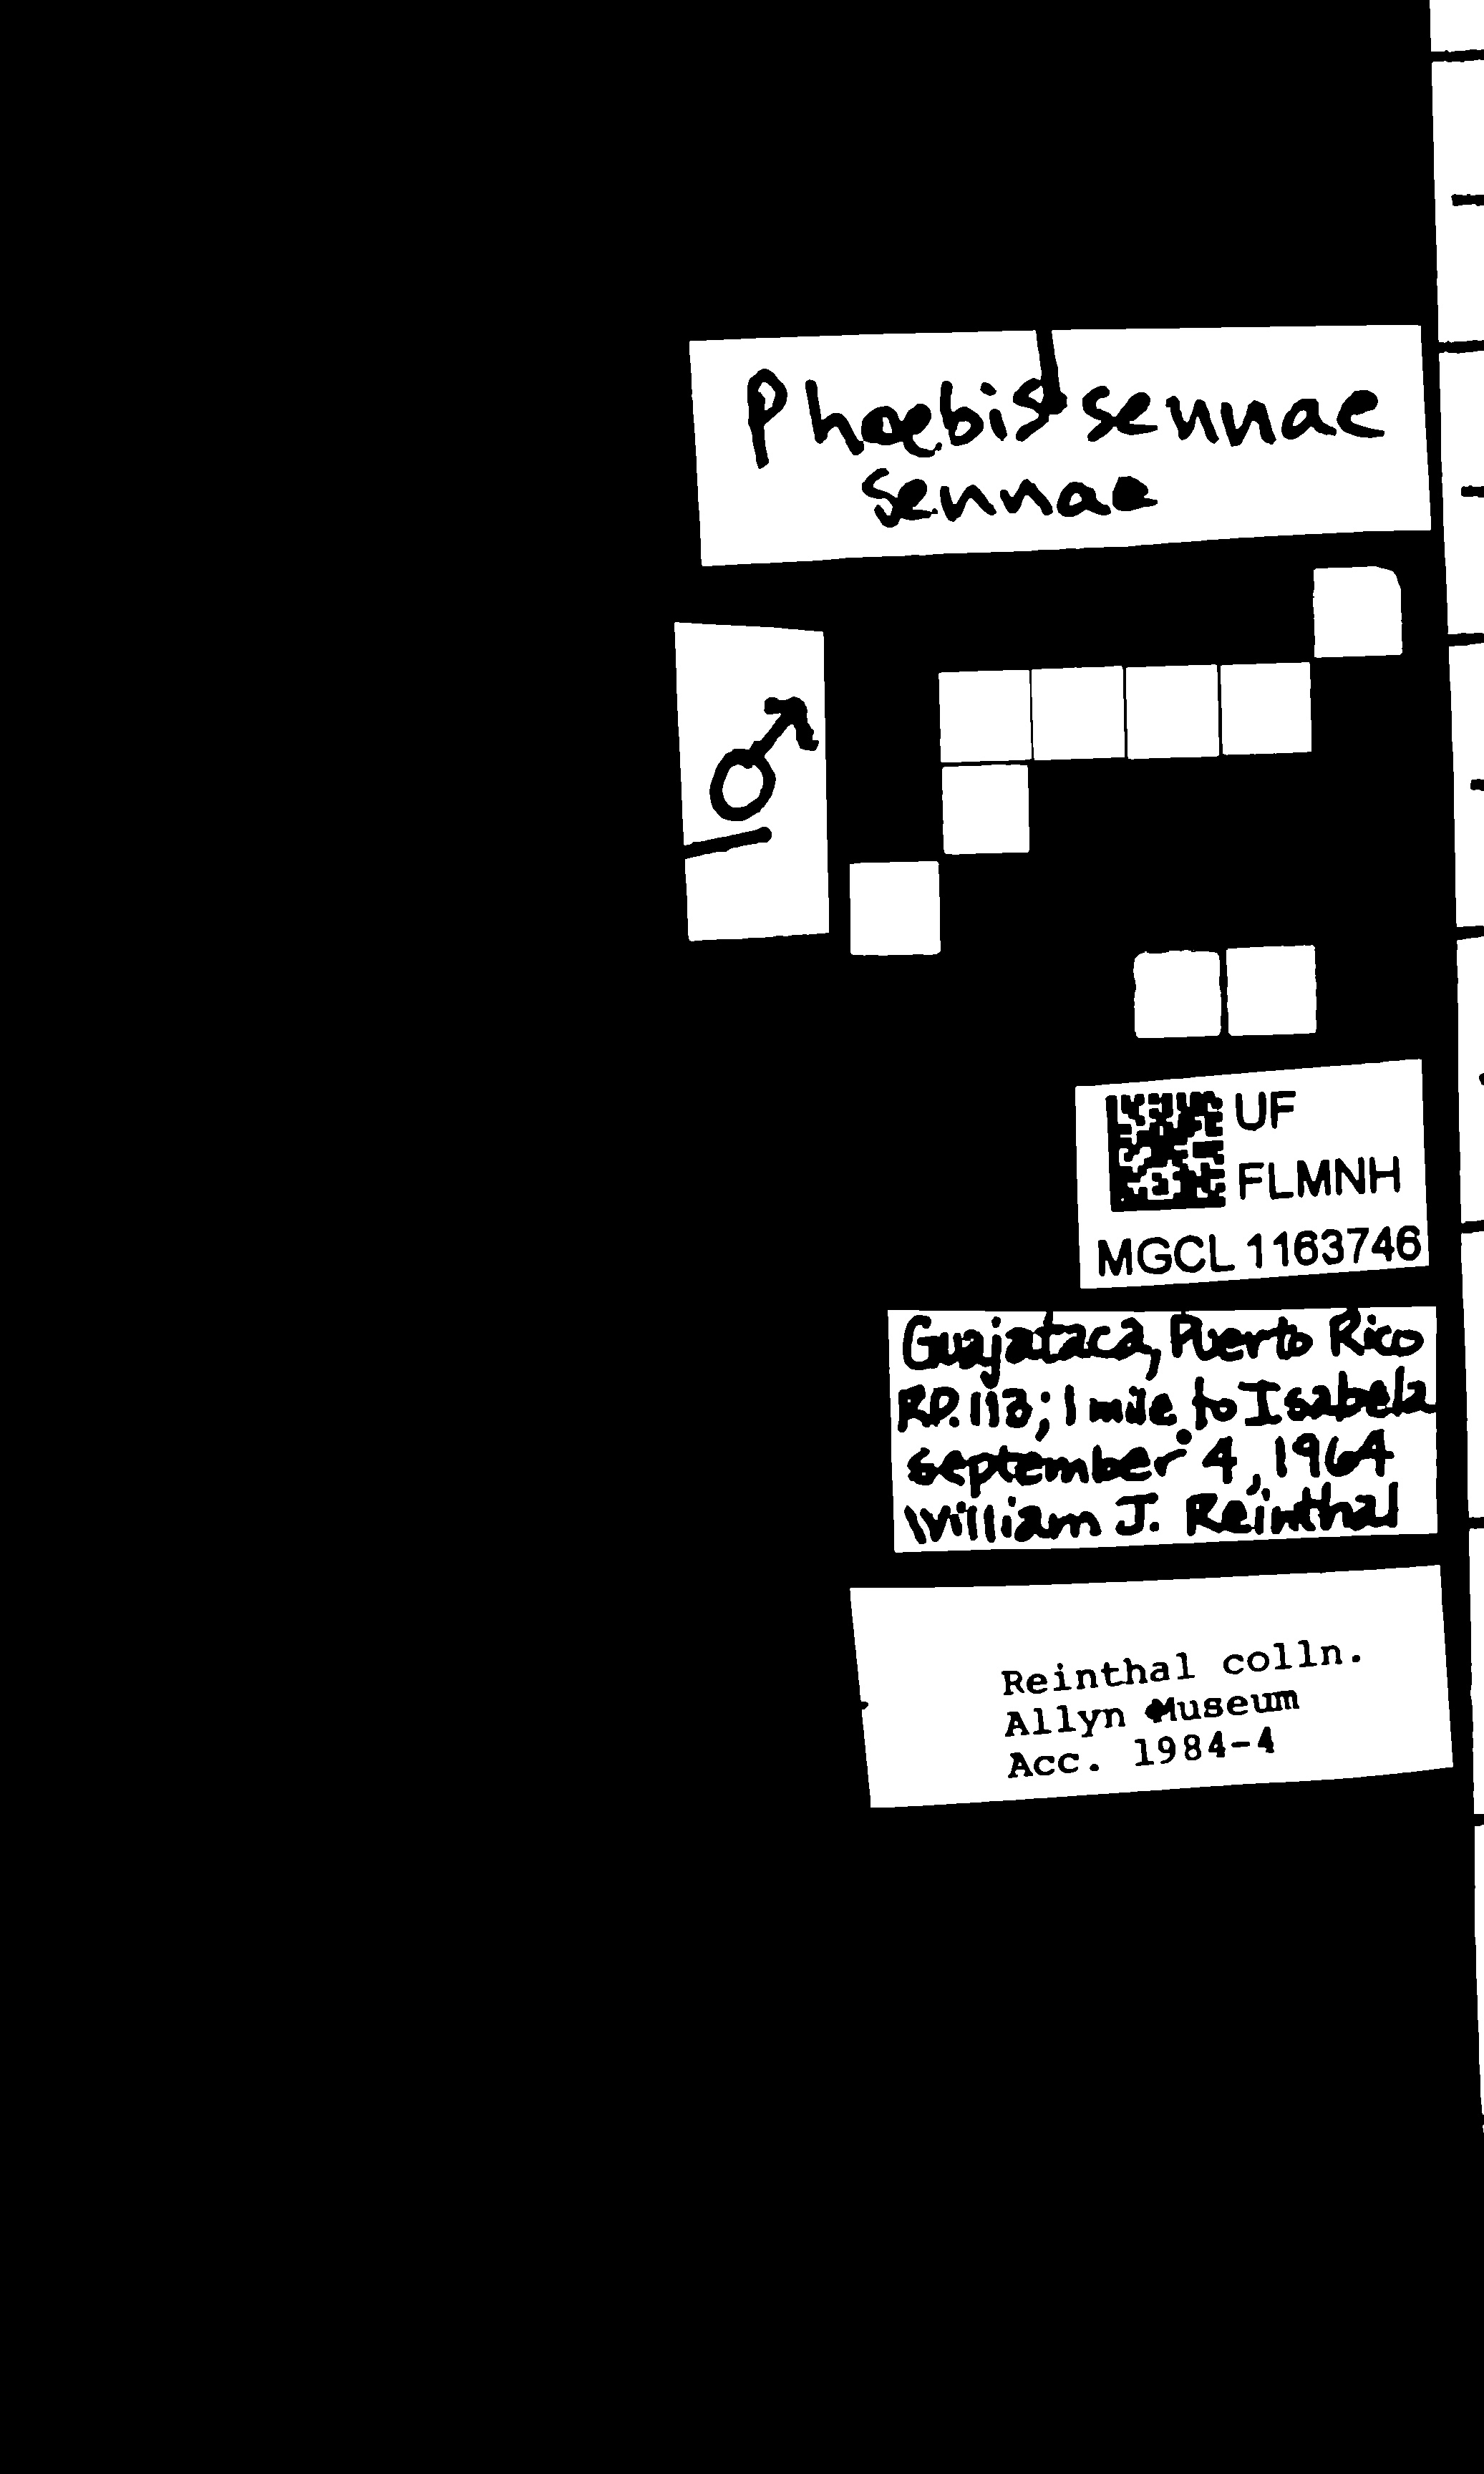 Phoebis sennae
sennae
♂
UF
FLMNH
MGCL 1163746
Guajataca, Puerto Rico
RD. 113; 1 mile to Isabela
September 4, 1964
William J. Reinthal
Reinthal colln.
Allyn Museum
Acc. 1984-4